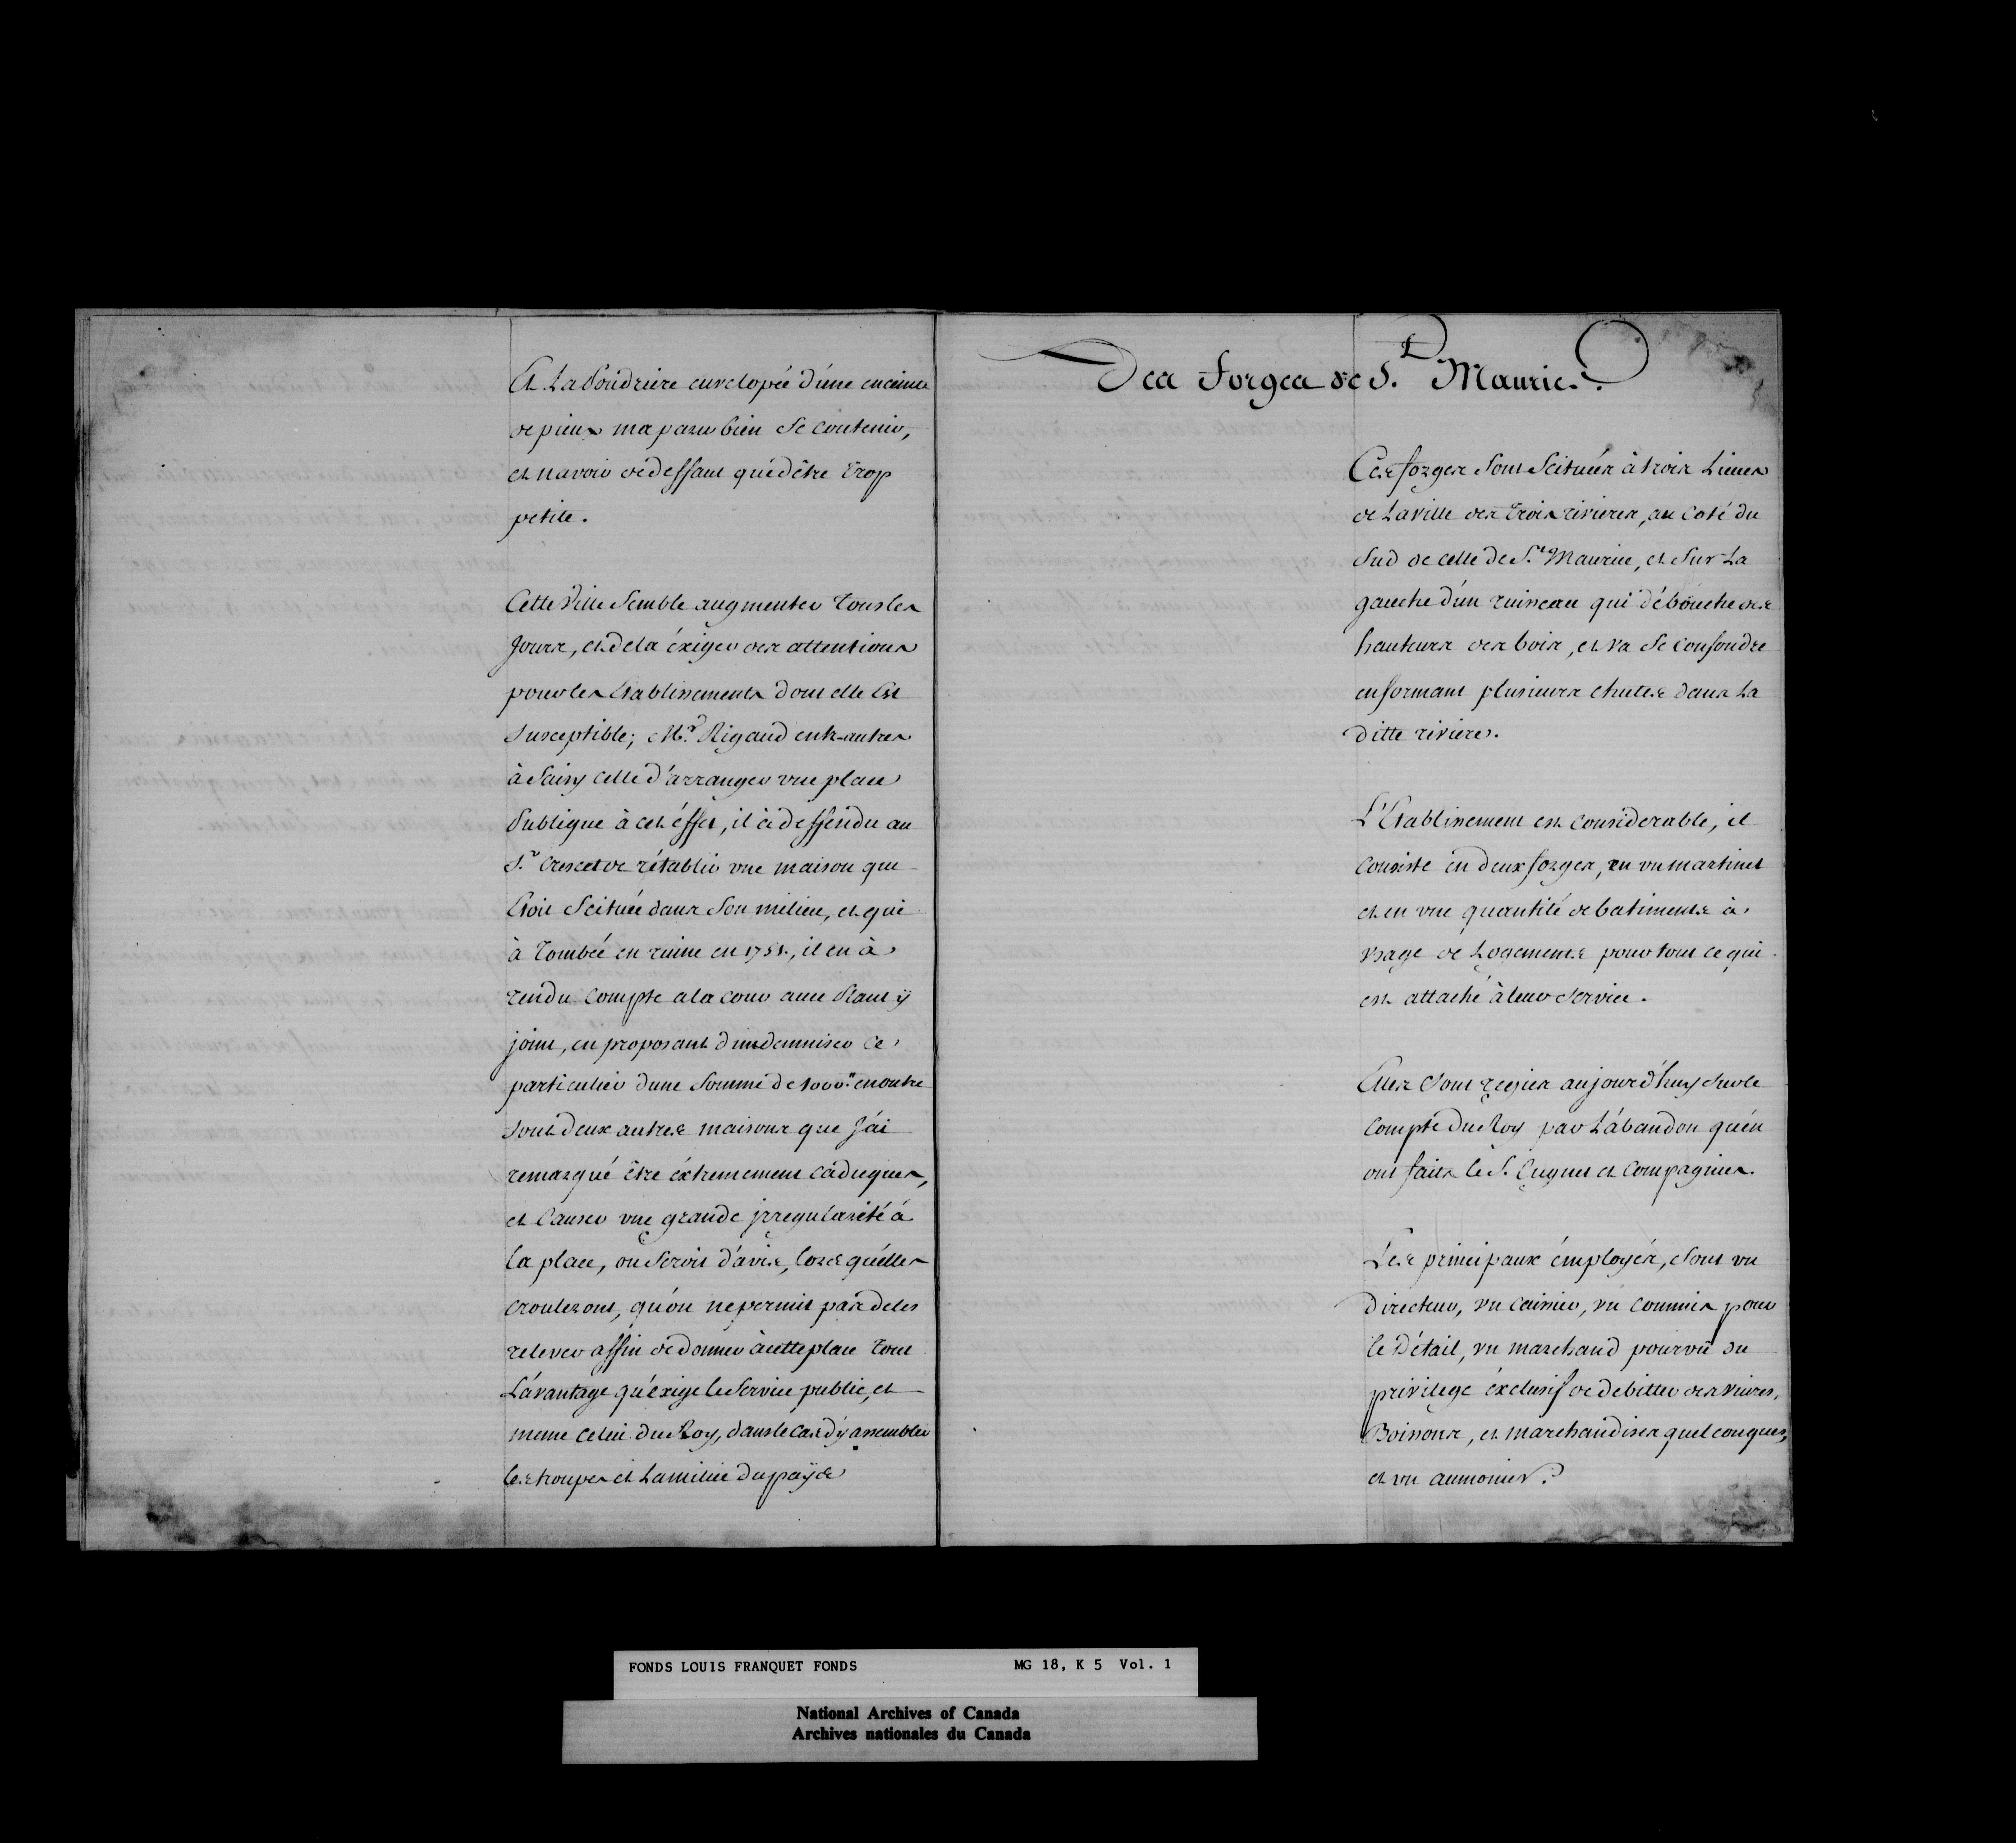 Et La Poudriere envelopée d'une enceinte
de pieux m'a paru bien Se contenir,
et n'avoir de deffaut que d'être trop
petite.
Cette Ville Semble augmenter tous les
Jours, et de la éxiger des attentions
pour les Etablissements dont elle Est
Susceptible; Mr. Rigaud entr-autres
à Saisy celle d'arranger une place
Publique à cet éffet, il à deffendu au
Sr. de rétablir une maison qui
Etoit Scituée dans Son milieu, et qui
à tombée en ruine en 1751., il en à
rendu compte a la cour avec Plan y
joint, en proposant d'indemniser ce
particulier d'une Somme de 1000.# en outre
sont deux autres maisons que J'ai
remarqué être éxtremement caduques,
et Causer une grande jrregularité à
la place, on Seroit d'avis, lors qu'elles
crouleront, qu'on ne permit pas de les
relever affin de donner à cette place tout
L'avantage qu'éxige le Service public, et
meme celui du Roy, dans le cas d'y assembler
les troupes et La milice du païs
Des Forges de St. Maurice.
Ces forges Sont Scituées à trois Lieues
de La Ville des trois rivieres, au Coté du
Sud de celle de St. Maurice, et Sur La
gauche d'un ruisseau qui débouche des
hauteurs des bois, et va Se confondre
en formant plusieurs chutes dans La
ditte riviere.
L'Etablissement est considerable, il
consiste en deux forges, en un martinet
et en une quantité de batiments à
usage de Logements pour tout ce qui
est attaché à leur Service.
Elles Sont regies aujourd'huy Sur le
Compte du Roy par L'ábandon qu'en
ont faits le S. Cugnet et Compagnies.
Les principaux émployés, Sont un
directeur, un Caissier, un Commis pour
le Détail, un marchand pourvû du
privilege éxclusif de debitter des vivres,
Boissons, et marchandises quelconques,
et un aumonier.
FONDS LOUIS FRANQUET FONDS MG 18, K 5 Vol. 1
National Archives of Canada
Archives nationales du Canada